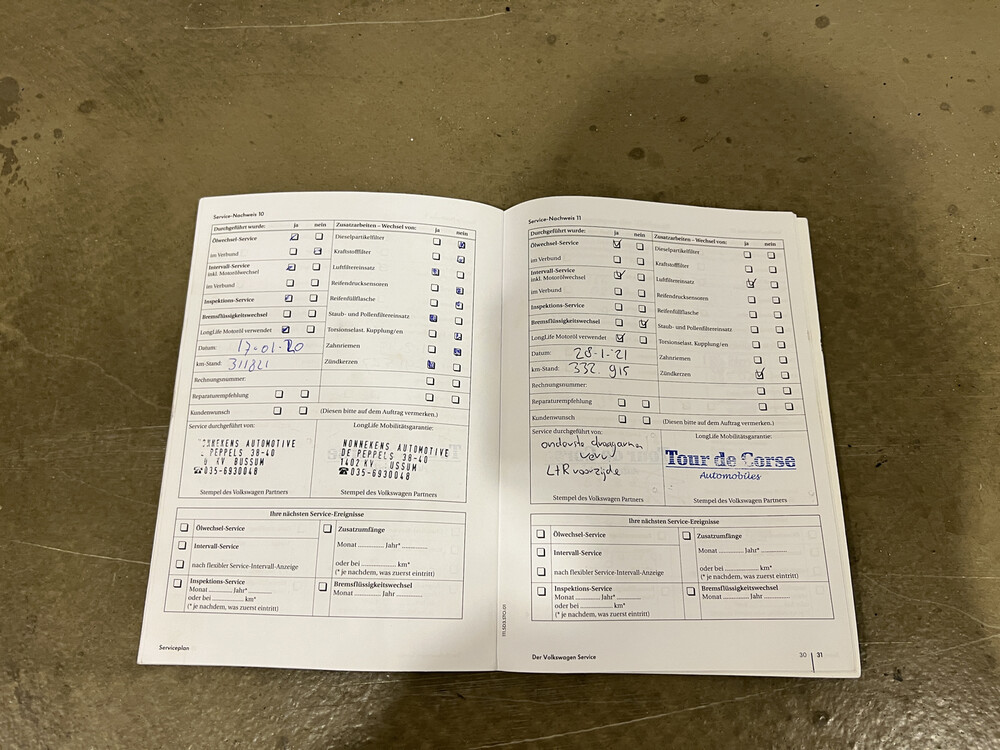 Service-Nachweis 10
Durchgeführt wurde: ja nein
Ölwechsel-Service
im Verbund
Intervall-Service
inkl. Motorölwechsel
im Verbund
Inspektions-Service
Bremsflüssigkeitswechsel
LongLife Motoröl verwendet
Datum: 17-01-20
km-Stand: 311821
Rechnungsnummer:
Reparaturempfehlung
Kundenwunsch
Zusatzarbeiten – Wechsel von: ja nein
Dieselpartikelfilter
Kraftstofffilter
Luftfiltereinsatz
Reifendrucksensoren
Reifenfüllflasche
Staub- und Pollenfiltereinsatz
Torsionselast. Kupplung/en
Zahnriemen
Zündkerzen
(Diesen bitte auf dem Auftrag vermerken.)
Service durchgeführt von:
NNEKENS AUTOMOTIVE
PEPPELS 38-40
KV BUSSUM
☎035-6930048
Stempel des Volkswagen Partners
LongLife Mobilitätsgarantie:
NONNEKENS AUTOMOTIVE
DE PEPPELS 38-40
1402 KV USSUM
☎035-6930048
Stempel des Volkswagen Partners
Ihre nächsten Service-Ereignisse
Ölwechsel-Service
Intervall-Service
nach flexibler Service-Intervall-Anzeige
Inspektions-Service
Monat Jahr*
oder bei km*
(* je nachdem, was zuerst eintritt)
Zusatzumfänge
Monat Jahr*
oder bei km*
(* je nachdem, was zuerst eintritt)
Bremsflüssigkeitswechsel
Monat Jahr
Serviceplan
Service-Nachweis 11
Durchgeführt wurde: ja nein
Ölwechsel-Service
im Verbund
Intervall-Service
inkl. Motorölwechsel
im Verbund
Inspektions-Service
Bremsflüssigkeitswechsel
LongLife Motoröl verwendet
Datum: 28-1-21
km-Stand: 332.915
Rechnungsnummer:
Reparaturempfehlung
Kundenwunsch
Zusatzarbeiten – Wechsel von: ja nein
Dieselpartikelfilter
Kraftstofffilter
Luftfiltereinsatz
Reifendrucksensoren
Reifenfüllflasche
Staub- und Pollenfiltereinsatz
Torsionselast. Kupplung/en
Zahnriemen
Zündkerzen
(Diesen bitte auf dem Auftrag vermerken.)
Service durchgeführt von:
L+R voorzijde
Stempel des Volkswagen Partners
LongLife Mobilitätsgarantie:
Tour de Corse
Automobiles
Stempel des Volkswagen Partners
Ihre nächsten Service-Ereignisse
Ölwechsel-Service
Intervall-Service
nach flexibler Service-Intervall-Anzeige
Inspektions-Service
Monat Jahr*
oder bei km*
(* je nachdem, was zuerst eintritt)
Zusatzumfänge
Monat Jahr*
oder bei km*
(* je nachdem, was zuerst eintritt)
Bremsflüssigkeitswechsel
Monat Jahr
Der Volkswagen Service
30 31